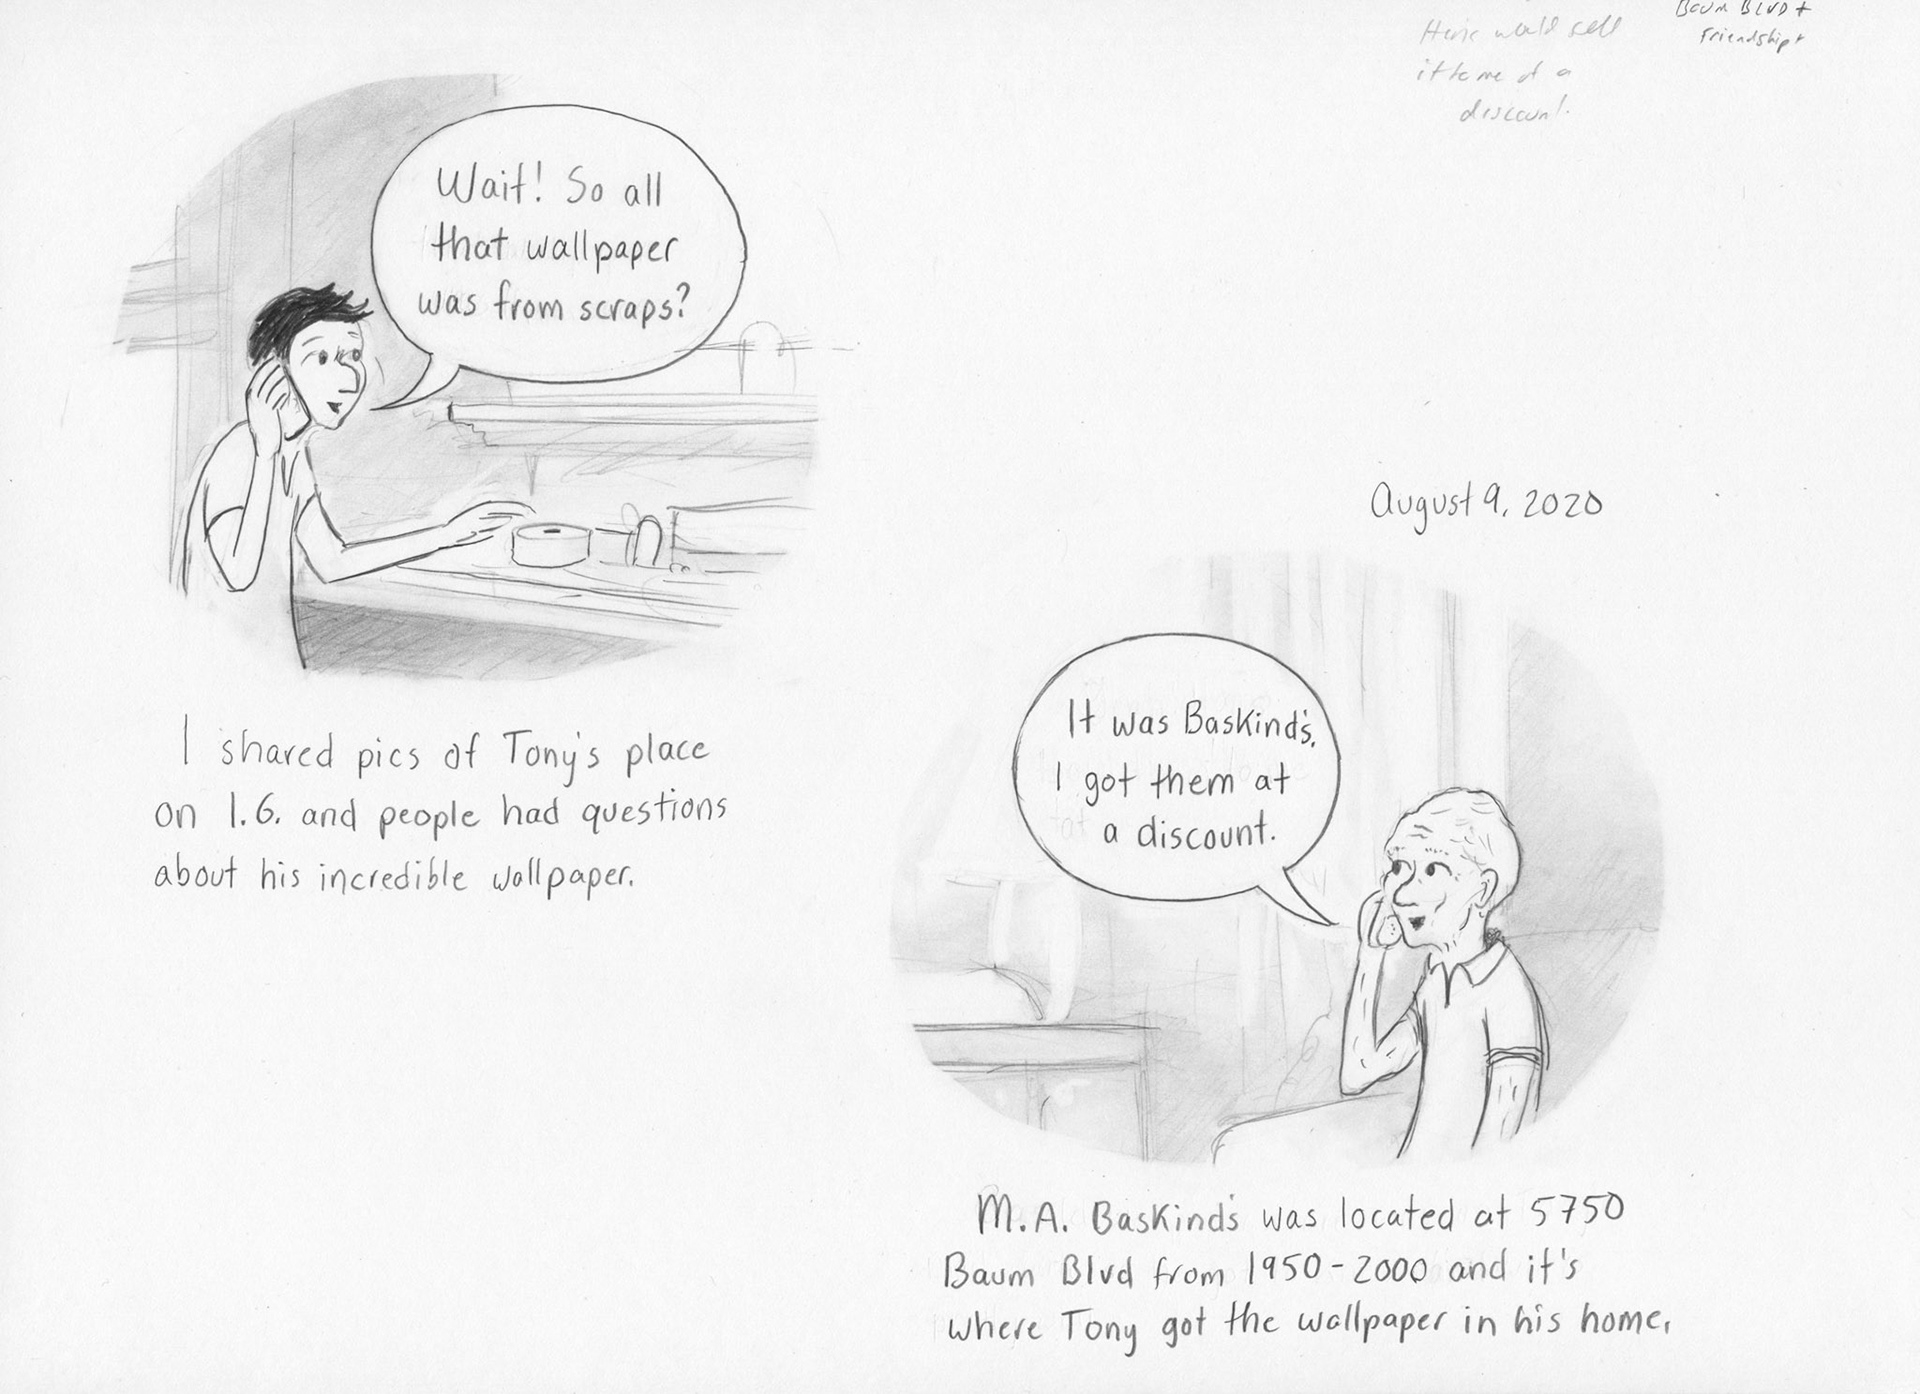 Baum Blvd +
Friendship
would sell
it to me at a
discount.
Wait! So all
that wallpaper
was from scraps?
I shared pics of Tony's place
on I.G. and people had questions
about his incredible wallpaper.
August 9, 2020
It was Baskind's.
I got them at
a discount.
M.A. Baskind's was located at 5750
Baum Blvd from 1950-2000 and it's
where Tony got the wallpaper in his home.